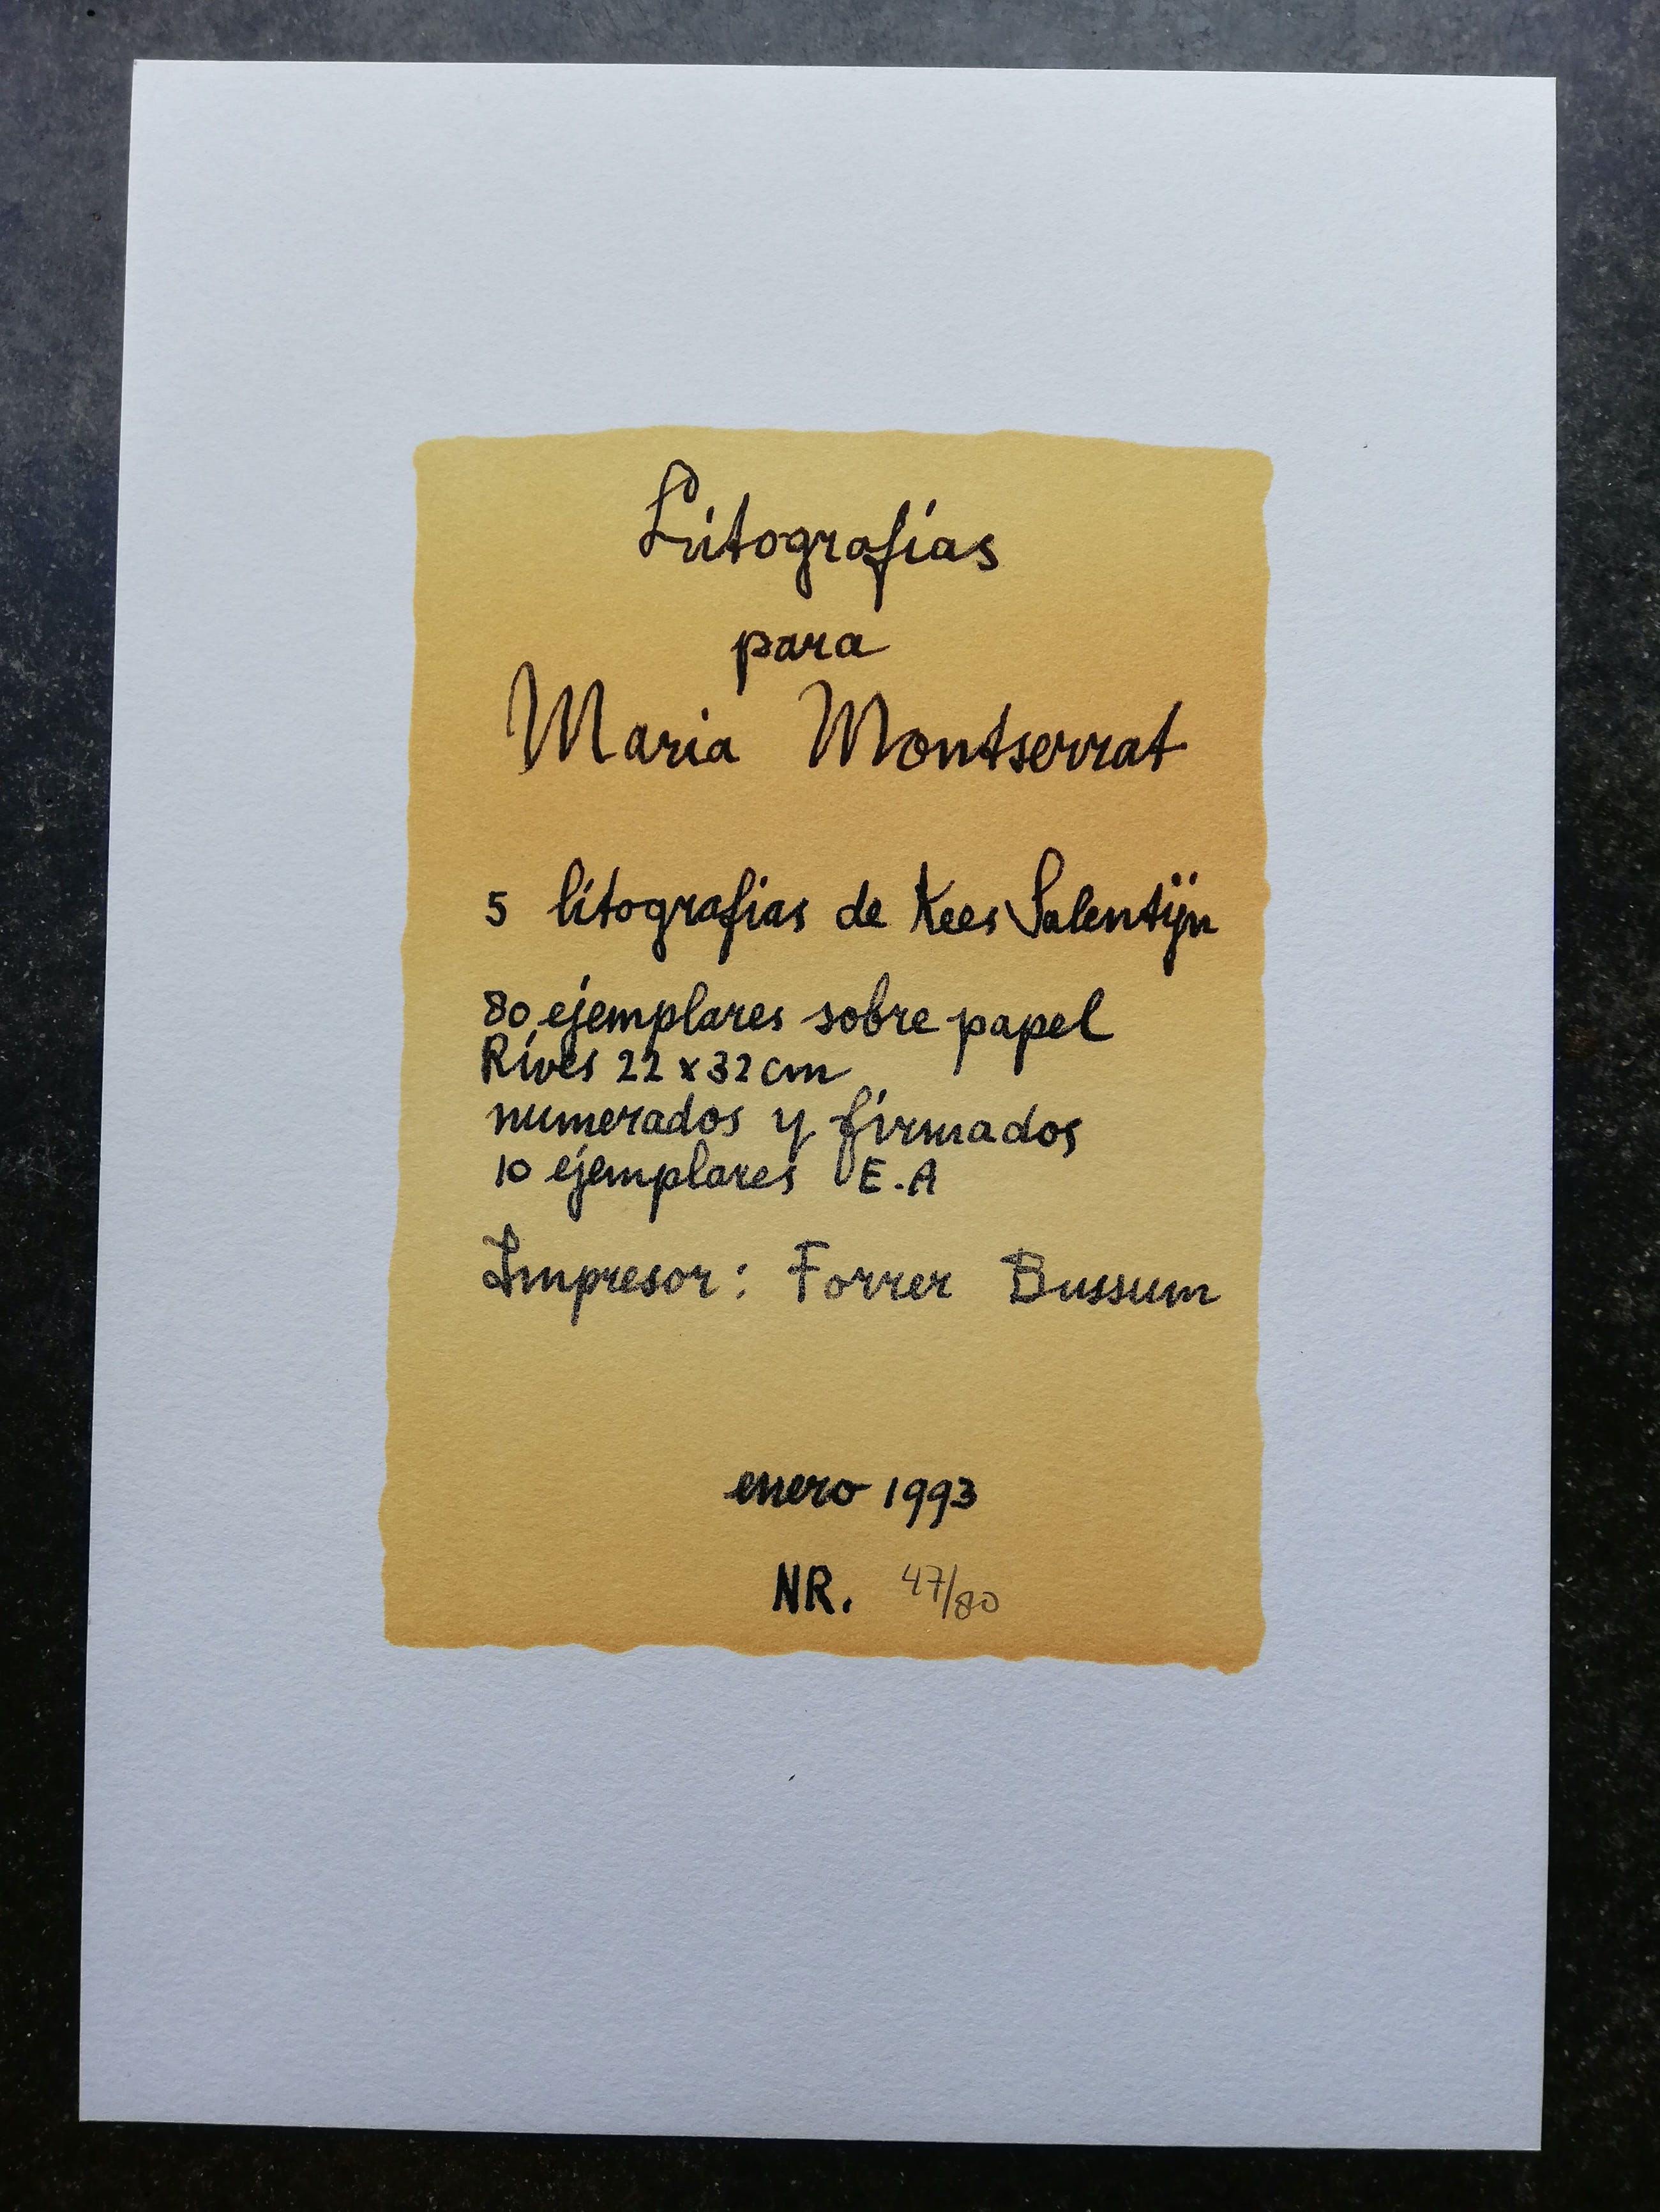 Litografías
para
Maria Montserrat
5 litografias de Kees Salentijn
80 ejemplares sobre papel
Rives 22 x 32 cm
numerados y firmados
10 ejemplares E.A
Impresor: Forrer Bussum
enero 1993
NR. 47/80